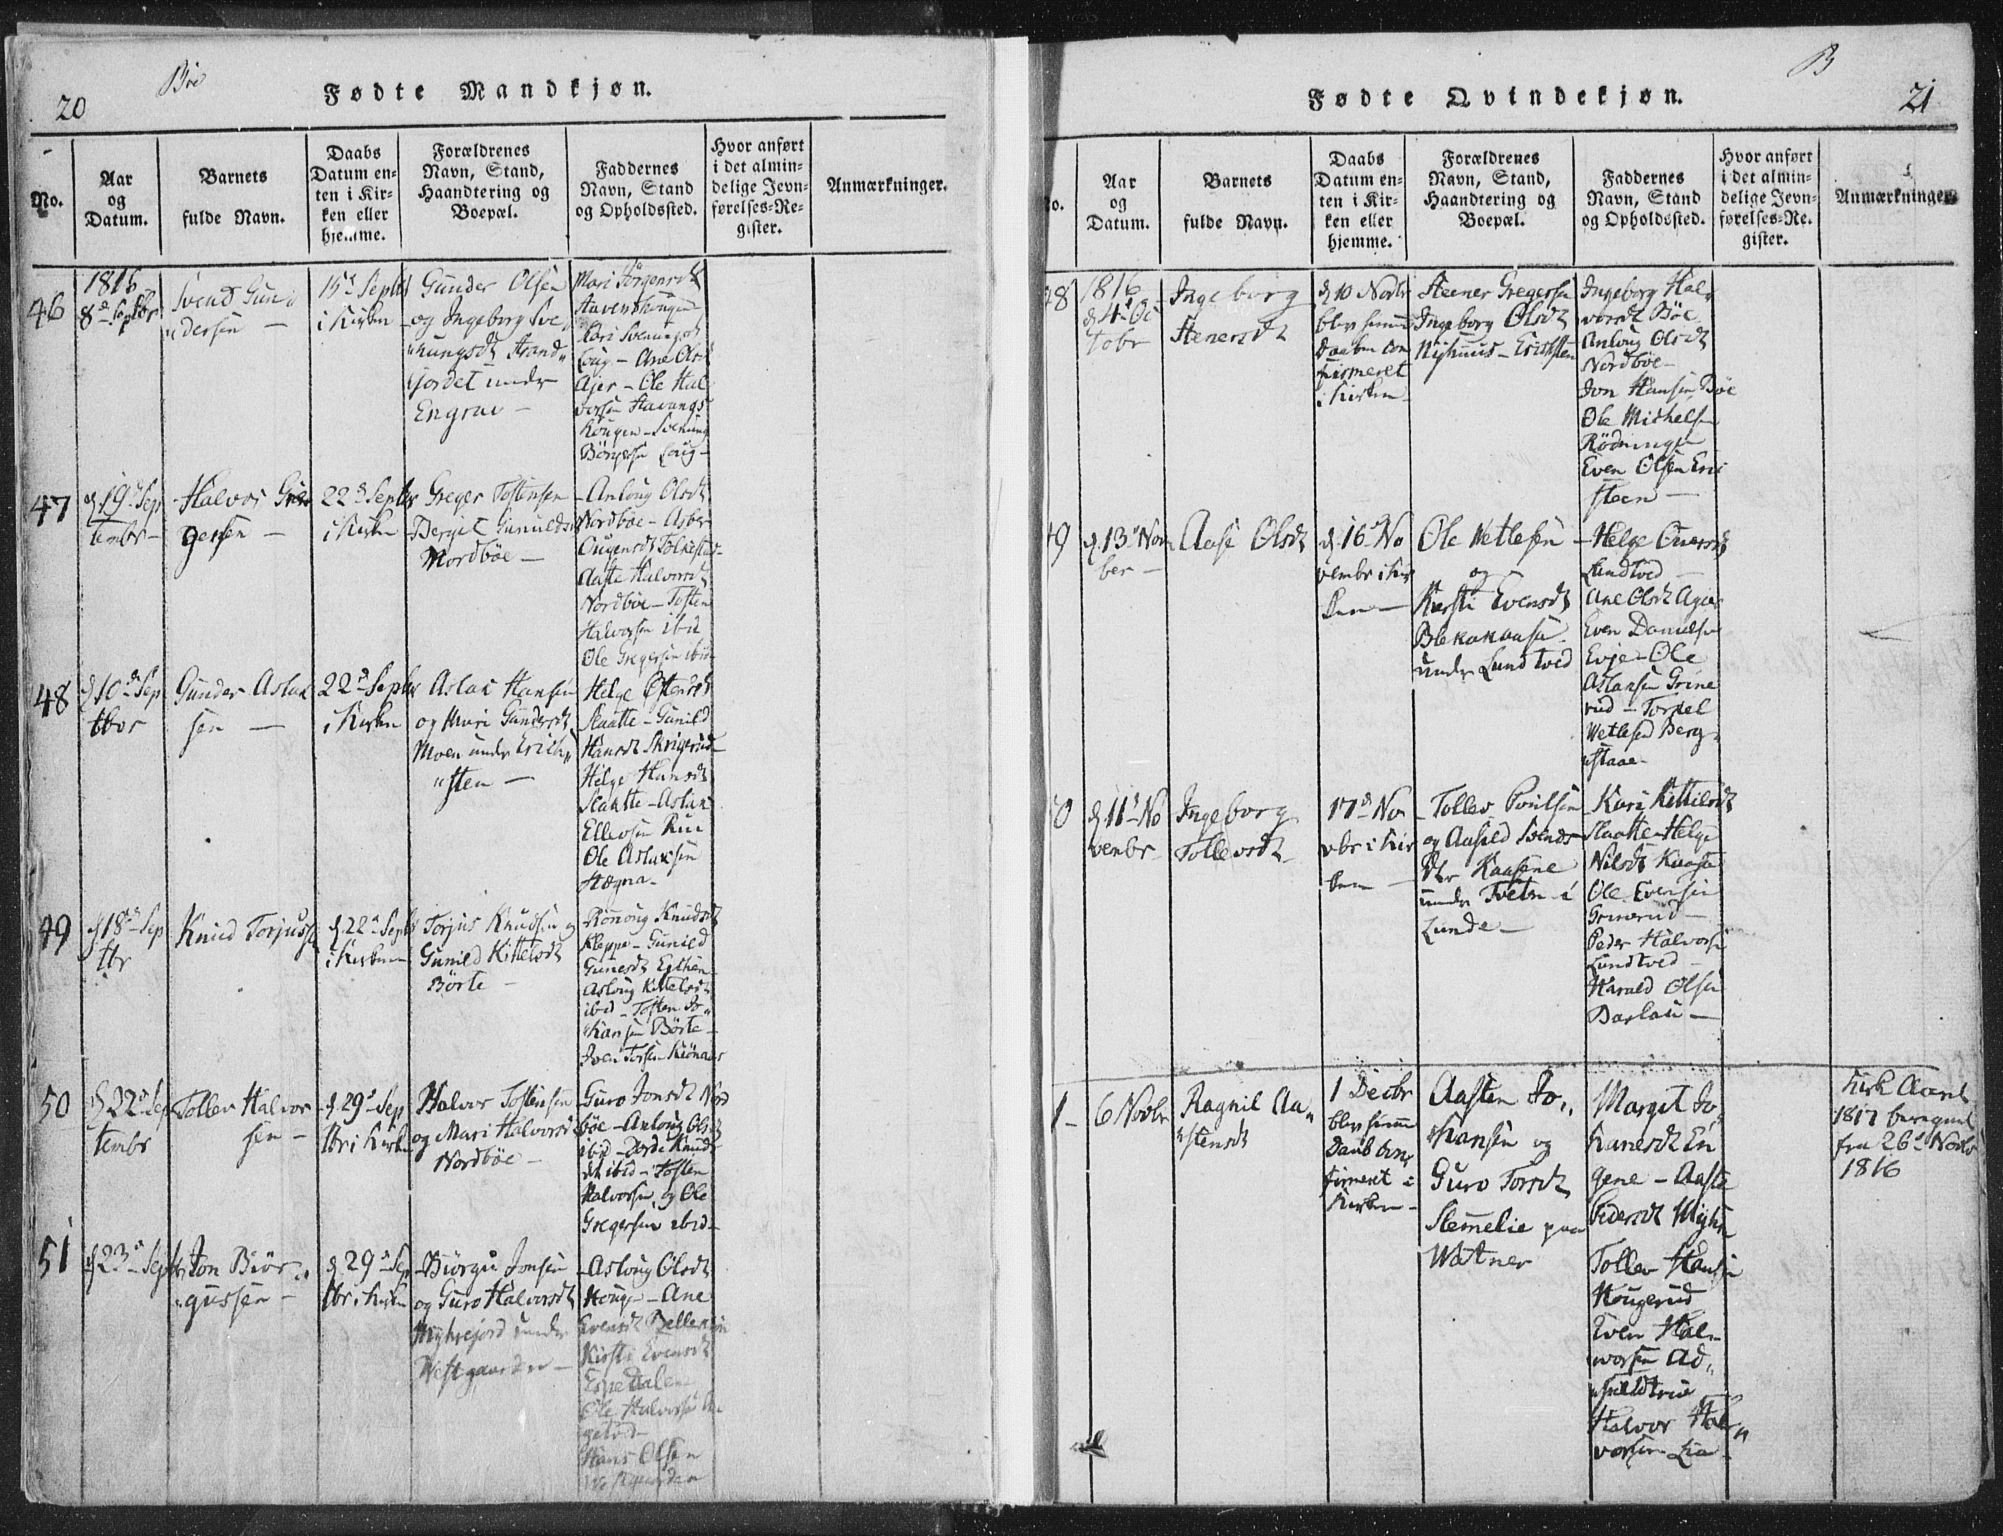 20
Bøe
Fødte Mandkjøn.
No.
Aar
og
Datum.
Barnets
fulde Navn.
Daabs
Datum en-
ten i Kir-
ken eller
hjemme.
Forældrenes
Navn, Stand,
Haandtering og
Boepæl.
Faddernes
Navn, Stand
og Opholdssted.
Hvor anført
i det almin-
delige Jevn-
førelses-Re-
gister.
Anmærkninger.
46
1816
8de Septbr
Svend Gun
dersen
15de Septbr
i Kirken
Gunder Olsen
og Ingeborg Sve
nungsdt Strand
gordet under
Engrav
Mari Jørgensdt
Kari Svenungsdt
Loug - Ane Olsdt
Ajer - Ole Hal
vorsen
Haugen - Svenung
Børgesen Loug
47
d 19de Sep
tembr
Halvor Gre
gersen
22de Septbr
i Kirken
Greger Tostensen
Bergit Gunuldsdt
Nordbøe
Anloug Olsdt
Nordbøe - Asber
Ougensdt Folkestad
Aaste Halvorsdt
Nordbøe - Tosten
Halvorsen ibid
Ole Gregersen ibid
48
d 10de Sep
tbr
Gunder Aslak
sen
22de Septbr
i Kirken
Aslak Hansen
og Mari Gundersdt
Moen under Erich
sten
Helge Østensdt
Slaatte - Gunild
Hansdt Skrigerud
Helge Hansdt
Slaatte - Aslak
Ellevsen Rue
Ole Aslaksen
Hægna
49
d 18de Sep
tbr
Knud Torjussen
d 22de Septbr
i Kirken
Torjus Knudsen og
Gunild Kittelsdt
Børte
Rønnoug Knudsdt
Kleppe - Gunild
Gunersdt
Asloug Kittelsdt
ibid - Tosten Jo
hansen Børte
Iver Torsen
50
d 22de Sep
tembr
Tollev Halvor
sen
d 29de Sep
tbr i Kirken
Halvor Tostensen
og Mari Halvorsdt
Nordbøe
Guro Jonsdt Nord
bøe - Anloug Olsdt
ibid - Dorde Knuds
dt ibid - Tosten
Halvorsen og Ole
Gregersen ibid
51
d 23de Septbr
Jon Biør
gussen
d 29de Sep
tbr i Kirken
Biørgu Jonsen
og Guro Halvorsdt
Myhrejord under
Westgaarden
Asloug Olsdt
Houge - Ane
Evensdt
Kirsti Evensdt
Espedalen
Ole Halvorsen
Hans Olsen
Westgaarden
B
21
Fødte Qvindekjøn.
No.
Aar
og
Datum.
Barnets
fulde Navn.
Daabs
Datum en-
ten i Kir-
ken eller
hjemme.
Forældrenes
Navn, Stand,
Haandtering og
Boepæl.
Faddernes
Navn, Stand
og Opholdssted.
Hvor anført
i det almin-
delige Jevn-
førelses-Re-
gister.
Anmærkninger
48
1816
d 4de Oc
tobr
Ingeborg
Stenersdt
d 10 Novbr
blev hiemme
Daaben con
firmeret
i Kirken
Steener Gregersen
Ingeborg Olsdt
Nyhuus - Erichsten
Ingeborg Hal
vorsdt Bøe
Anloug Olsdt
Nordbøe
Jon Hansen Bøe
Ole Michelsen
Rødningen
Even Olsen Eric
steen
49
d 13de Novem
ber
Aase Olsdt
d 16de No
vembr i Kir
ken
Ole Wetlesen
og
Kirsti Evensdt
Blekakaasa
under Lundtved
Helge
Lundtved
Ane Olsdt Ajer
Even Danielsen
Evje - Ole
Aslansen Grine
rud - Torkel
Wetlesen Berg
staae
50
d 11de No
vembr
Ingeborg
Tollevsdt
17de No
vbr i Kir
ken
Tollev Poulsen
og Aasild Svends
dtr Kaasene
under Tveten i
Lunde
Kari Kittilsdt
Slaatte - Helge
Nilsdt Kaasa
Ole Evensen
Grinerud
Peder Halvorsen
Lundtved
Harald Olsen
1
6 Novbr
Ragnil Aa
stensdt
1 Decbr
blev hiemme
Daab con
firmeret i
Kirken
Aasten Jo
hansen og
Guro Torsdt
Stemelie paa
Watner
Margit Jo
hanesdt En
gene - Aaste
Pedersdt Myhr
Tollev Hansen
Hougerud
Even Hal
vorsen
Halvor Hal
vorsen Lia
Kirk Aaret
1817 beregnet
fra 26de Novbr
1816